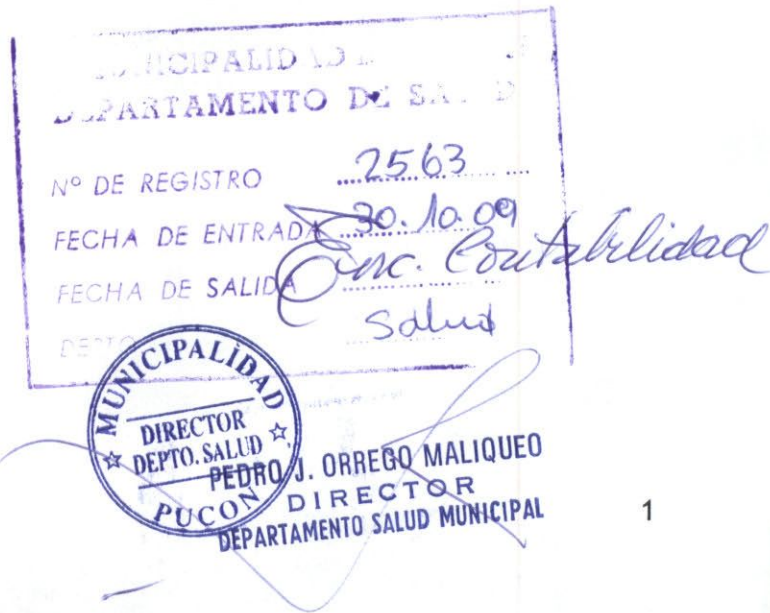 DEPARTAMENTO DE
Nº DE REGISTRO 2563
FECHA DE ENTRADA 30.10.09
Enc. Contabilidad
FECHA DE SALIDA
Salud
DEPTO
MUNICIPALIDAD
DIRECTOR
DEPTO. SALUD
PUCON
PEDRO J. ORREGO MALIQUEO
DIRECTOR
DEPARTAMENTO SALUD MUNICIPAL
1